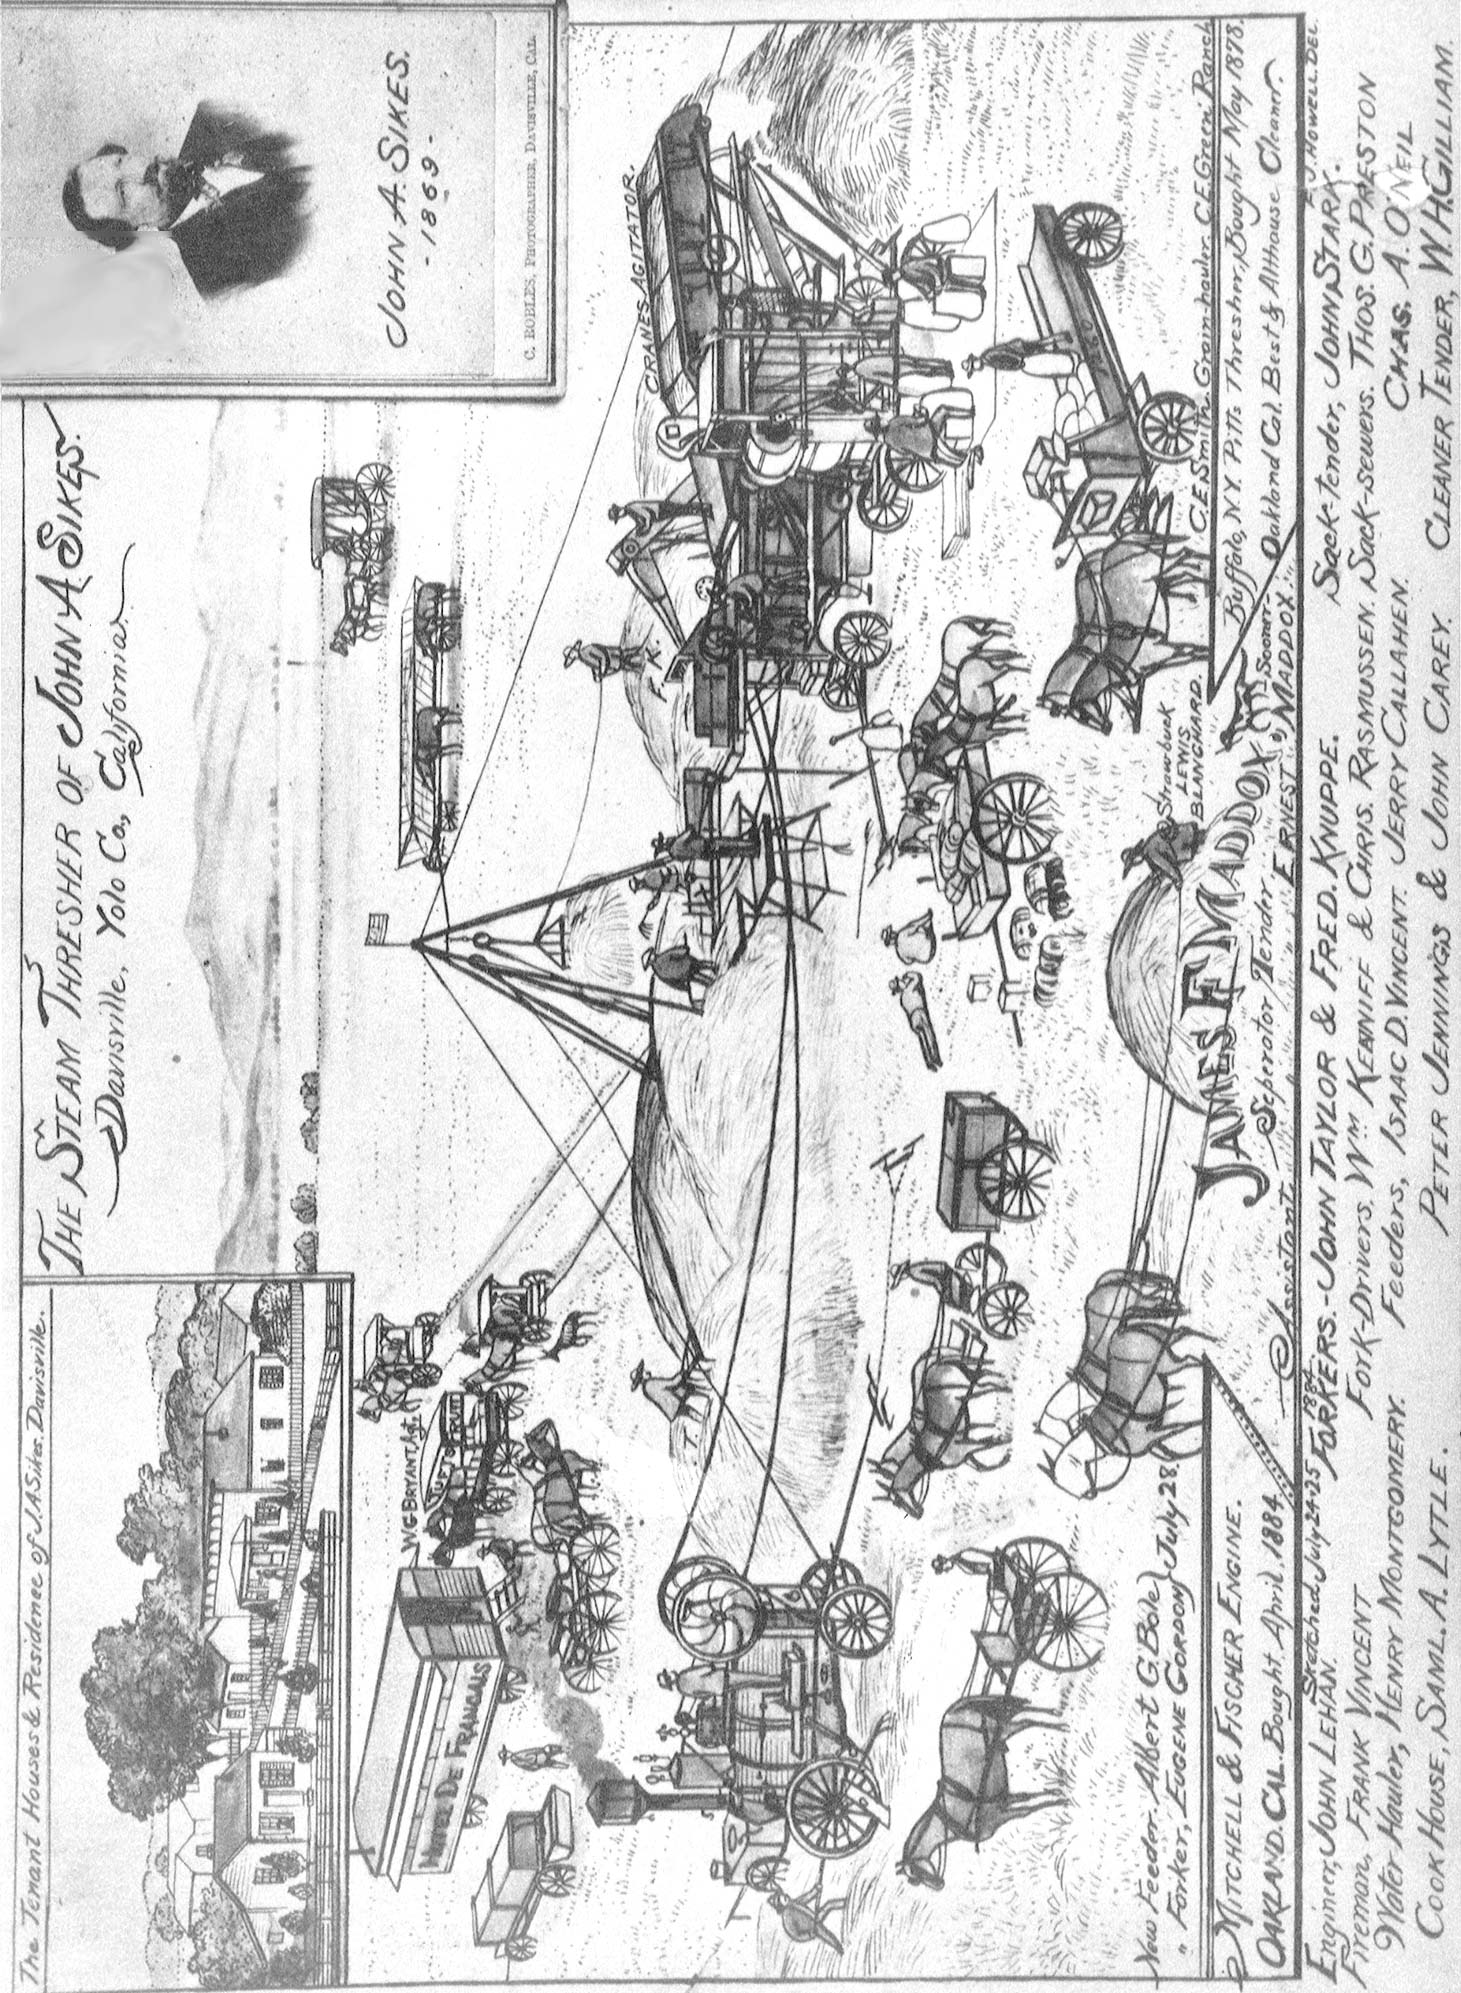 The Tenant Houses & Residence of J.A. Sikes. Davisville.
THE STEAM THRESHER OF JOHN A SIKES.
Davisville, Yolo Co, California.
JOHN A. SIKES.
- 1869 -
C. ROBLES, PHOTOGRAPHER, DAVISVILLE, CAL.
W G BRYANT Agt.
FRUIT
HOTEL DE FRANCAIS
CRANES AGITATOR.
T.
F.
K.
Strawbuck
LEWIS
BLANCHARD.
C.E. Smith. Grain-hauler. C.E. Green. Ranch
New Feeder. Albert G. Bole
" Forker, EUGENE GORDON July 28.
JAMES E MADDOX
Seperator Tender
Assistant " " ERNEST MADDOX
Sooner
MITCHELL & FISCHER ENGINE.
OAKLAND. CAL. Bought April. 1884.
Buffalo, N.Y. Pitts Thresher, Bought May 1878.
Oakland Cal. Best & Althouse Cleaner.
Sketched July 24-25 1884
E. J. HOWELL DEL
Engineer, JOHN LEHAN. FORKERS.- JOHN TAYLOR & FRED. KNUPPE. Sack-tender, JOHN STARK.
Fireman, FRANK VINCENT FORK-DRIVERS. Wm KENNIFF & CHRIS. RASMUSSEN. Sack-sewers. THOS. G. PRESTON
Water-Hauler, HENRY MONTGOMERY. Feeders, ISAAC D. VINCENT. JERRY CALLAHEN. CHAS. A. O'NEIL
COOK HOUSE, SAML. A. LYTLE. PETER JENNINGS & JOHN CAREY. CLEANER TENDER, W.H. GILLIAM.